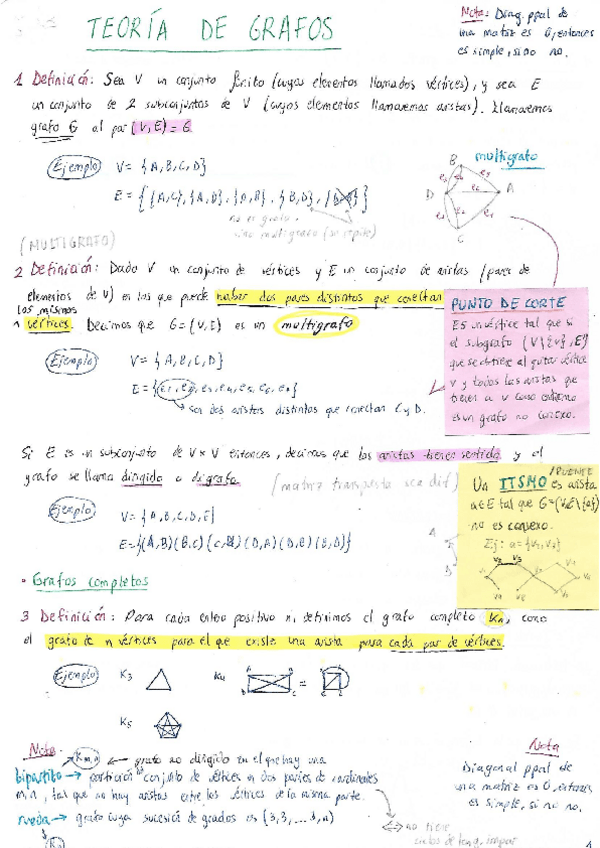 TEORÍA DE GRAFOS
Nota: Diag. ppal de
una matriz es 0, entonces
es simple, si no no.
1 Definición: Sea V un conjunto finito (cuyos elementos llamados vértices), y sea E
un conjunto de 2 subconjuntos de V (cuyos elementos llamaremos aristas). Llamaremos
grafo G al par (V,E) = G
Ejemplo V = {A,B,C,D}
E = {{A,C}, {A,D}, {A,B}, {B,D},
no es grafo,
sino multigrafo (se repite)
multigrafo
B
D
A
C
(MULTIGRAFO)
2 Definición: Dado V un conjunto de vértices y E un conjunto de aristas (pares de
elementos de V) en los que puede haber dos pares distintos que conectan
los mismos
vértices. Decimos que G = (V,E) es un multigrafo
PUNTO DE CORTE
Es un vértice tal que si
el subgrafo (V\{v}, E')
que se obtiene al quitar vértice
v y todas las aristas que
tienen a v como extremo
es un grafo no conexo.
Ejemplo V = {A,B,C,D}
E = {e1, e2, e3, e4, e5, e6, e7}
son dos aristas distintas que conectan C y D.
Si E es un subconjunto de V×V entonces, decimos que las aristas tienen sentido y el
grafo se llama dirigido o digrafo. (matriz transpuesta sea dif)
Ejemplo V = {A,B,C,D,E}
E = {(A,B)(B,C)(C,A)(D,A)(D,E)(E,D)}
A
D
/PUENTE
Un ITSMO es arista
a∈E tal que G=(V,E\{a})
no es conexo.
Ej: a = {v2,v3}
· Grafos completos
3 Definición: Para cada entero positivo n, definimos el grafo completo Kn, como
el grafo de n vértices para el que existe una arista para cada par de vértices.
Ejemplo K3 K4 =
K5
Nota
Km,n ← grafo no dirigido en el que hay una
bipartito → partición conjunto de vértices en dos partes de cardinales
m,n, tal que no hay aristas entre los vértices de la misma parte.
rueda → grafo cuya sucesión de grados es (3,3,...3,n)
⟺ no tiene
ciclos de long. impar
Nota
Diagonal ppal de
una matriz es 0, entonces
es simple, si no no.
1